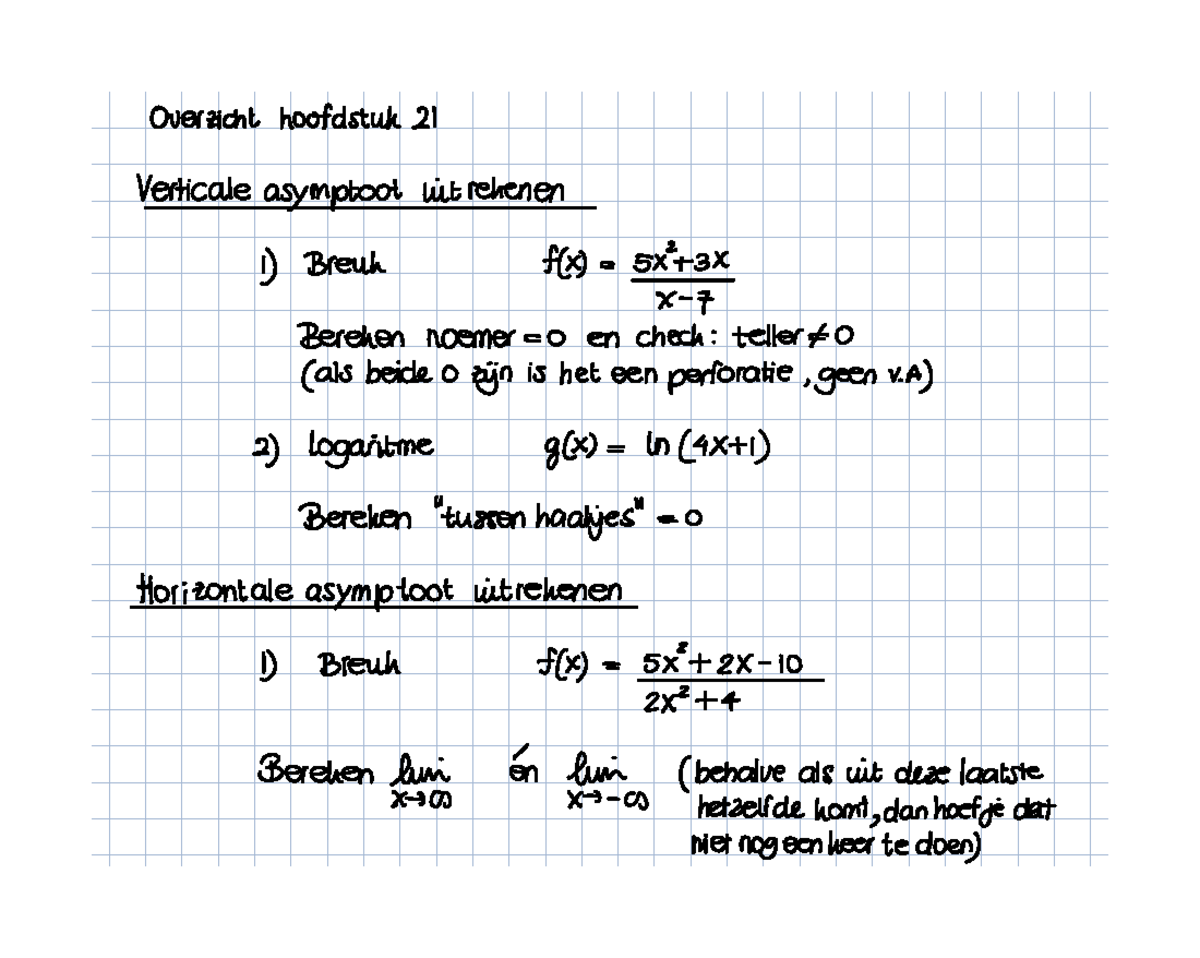 Overzicht hoofdstuk 21
Verticale asymptoot uitrekenen
1) Breuk f(x) = (5x²+3x)/(x-7)
Bereken noemer = 0 en check: teller ≠ 0
(als beide 0 zijn is het een perforatie, geen v.A)
2) logaritme g(x) = ln (4x+1)
Bereken "tussen haakjes" = 0
Horizontale asymptoot uitrekenen
1) Breuk f(x) = (5x²+2x-10)/(2x²+4)
Bereken lim x→∞ én lim x→-∞ (behalve als uit deze laatste
hetzelfde komt, dan hoef je dat
niet nog een keer te doen)